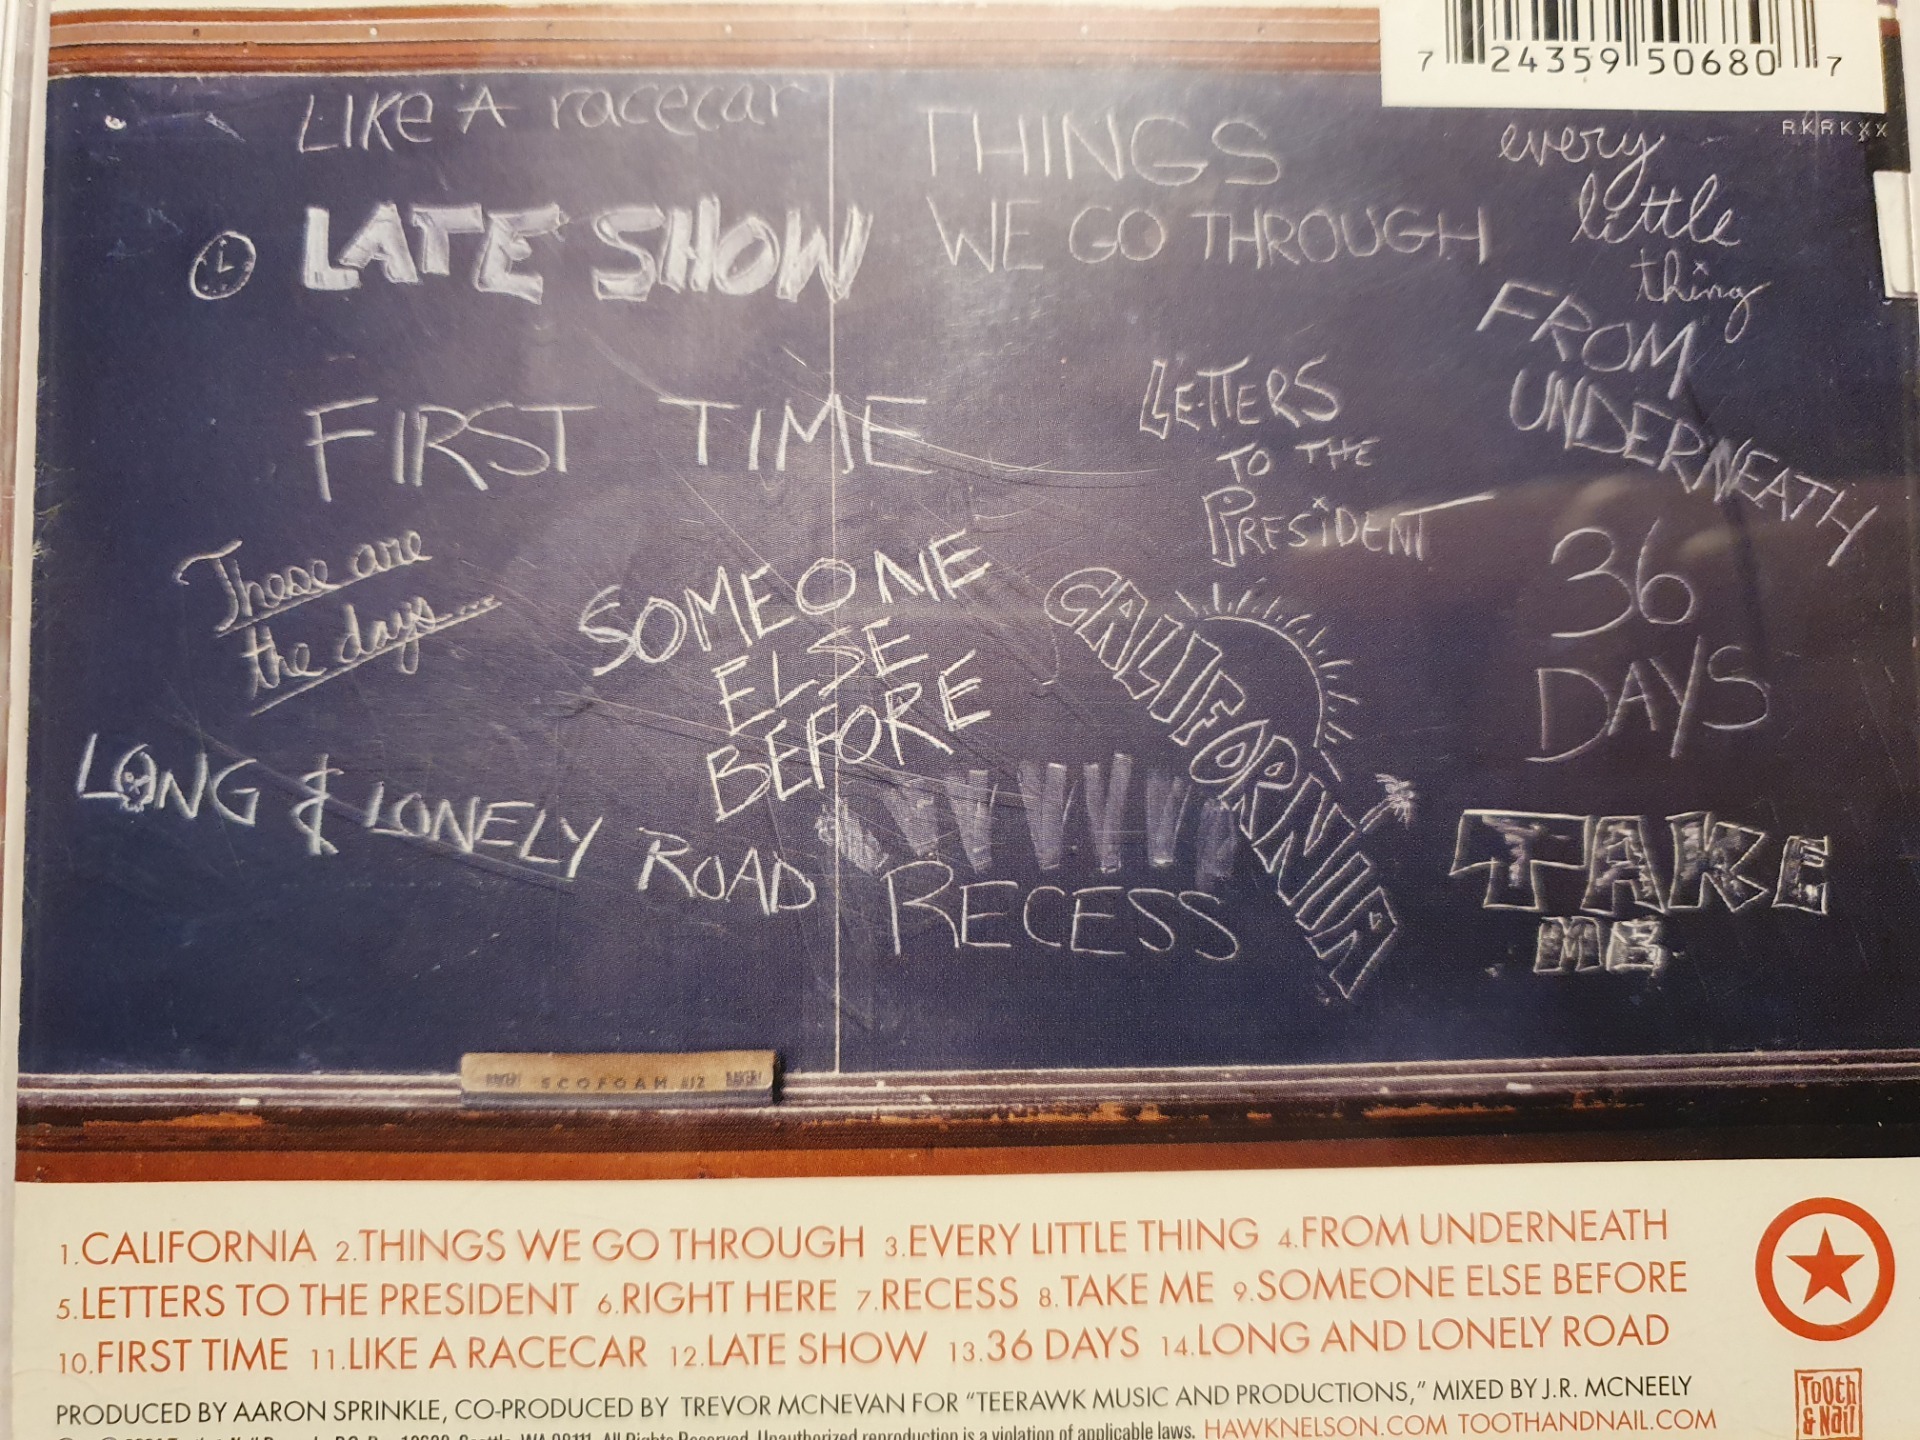 7 24359 50680 7
RKRKXX
LIKE A racecar
THINGS
WE GO THROUGH
every
little
thing
LATE SHOW
FROM
UNDERNEATH
FIRST TIME
LETTERS
TO THE
PRESIDENT
36
DAYS
These are
the days...
SOMEONE
ELSE
BEFORE
CALIFORNIA
LONG & LONELY ROAD
RECESS
TAKE
ME
ECOFOAM
1.CALIFORNIA 2.THINGS WE GO THROUGH 3.EVERY LITTLE THING 4.FROM UNDERNEATH
5.LETTERS TO THE PRESIDENT 6.RIGHT HERE 7.RECESS 8.TAKE ME 9.SOMEONE ELSE BEFORE
10.FIRST TIME 11.LIKE A RACECAR 12.LATE SHOW 13.36 DAYS 14.LONG AND LONELY ROAD
PRODUCED BY AARON SPRINKLE, CO-PRODUCED BY TREVOR MCNEVAN FOR "TEERAWK MUSIC AND PRODUCTIONS," MIXED BY J.R. MCNEELY
Seattle, WA 98111. All Rights Reserved. Unauthorized reproduction is a violation of applicable laws. HAWKNELSON.COM TOOTHANDNAIL.COM
Tooth
& Nail